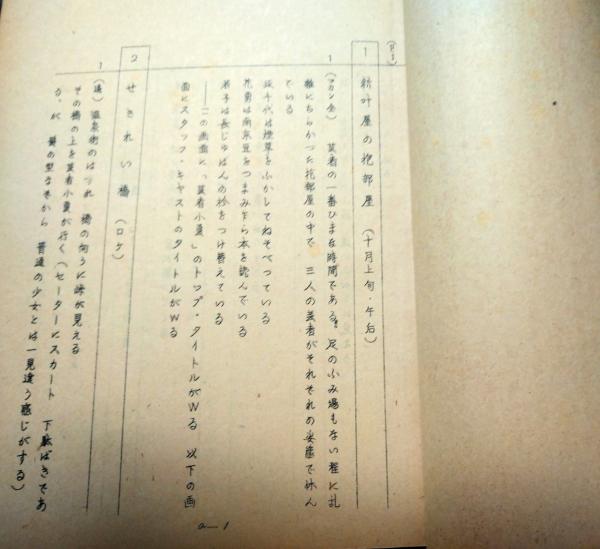 (F・I)
1 新叶屋の抱部屋 (十月上旬・午后)
1 (フカン全) 芸者の一番ひまな時間である。足のふみ場もない程に乱
雑にちらかった抱部屋の中で 三人の芸者がそれぞれの姿態で休ん
でいる
千代は煙草をふかしてねそべっている
花勇は南京豆をつまみ乍ら本を読んでいる
若子は長じゅばんの衿をつけ替えている
――この画面に「芸者小夏」のトップ・タイトルがWる 以下の画
面にスタッフ・キャストのタイトルがWる
2 せきれい橋 (ロケ)
1 (遠) 温泉街のはづれ 橋の向うに海が見える
その橋の上を芸者小夏が行く(セーターにスカート 下駄ばきであ
るが 髪の型などから 普通の少女とは一見違う感じがする)
a—1